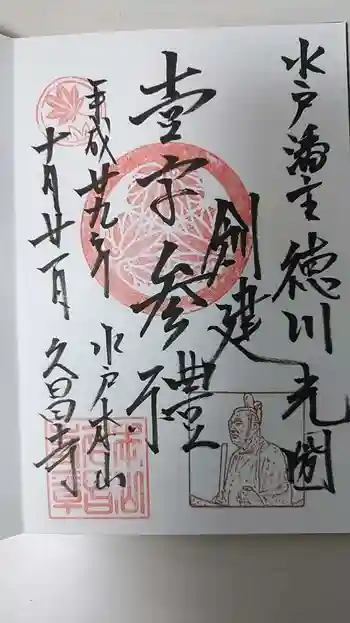 水戸藩主徳川光圀
創建
堂宇参禮
平成廿九年
十月廿一日
水戸本山
久昌寺